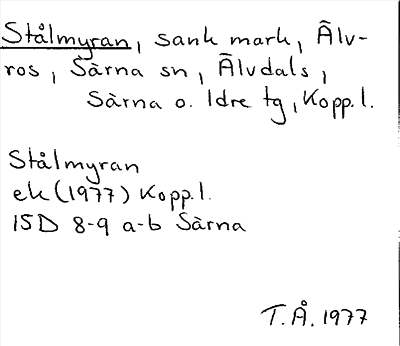 Stålmyran, sank mark, Älv-
ros, Särna sn, Älvdals,
Särna o. Idre tg, Kopp.l.
Stålmyran
ek (1977) Kopp.l.
15D 8-9 a-b Särna
T.Å. 1977